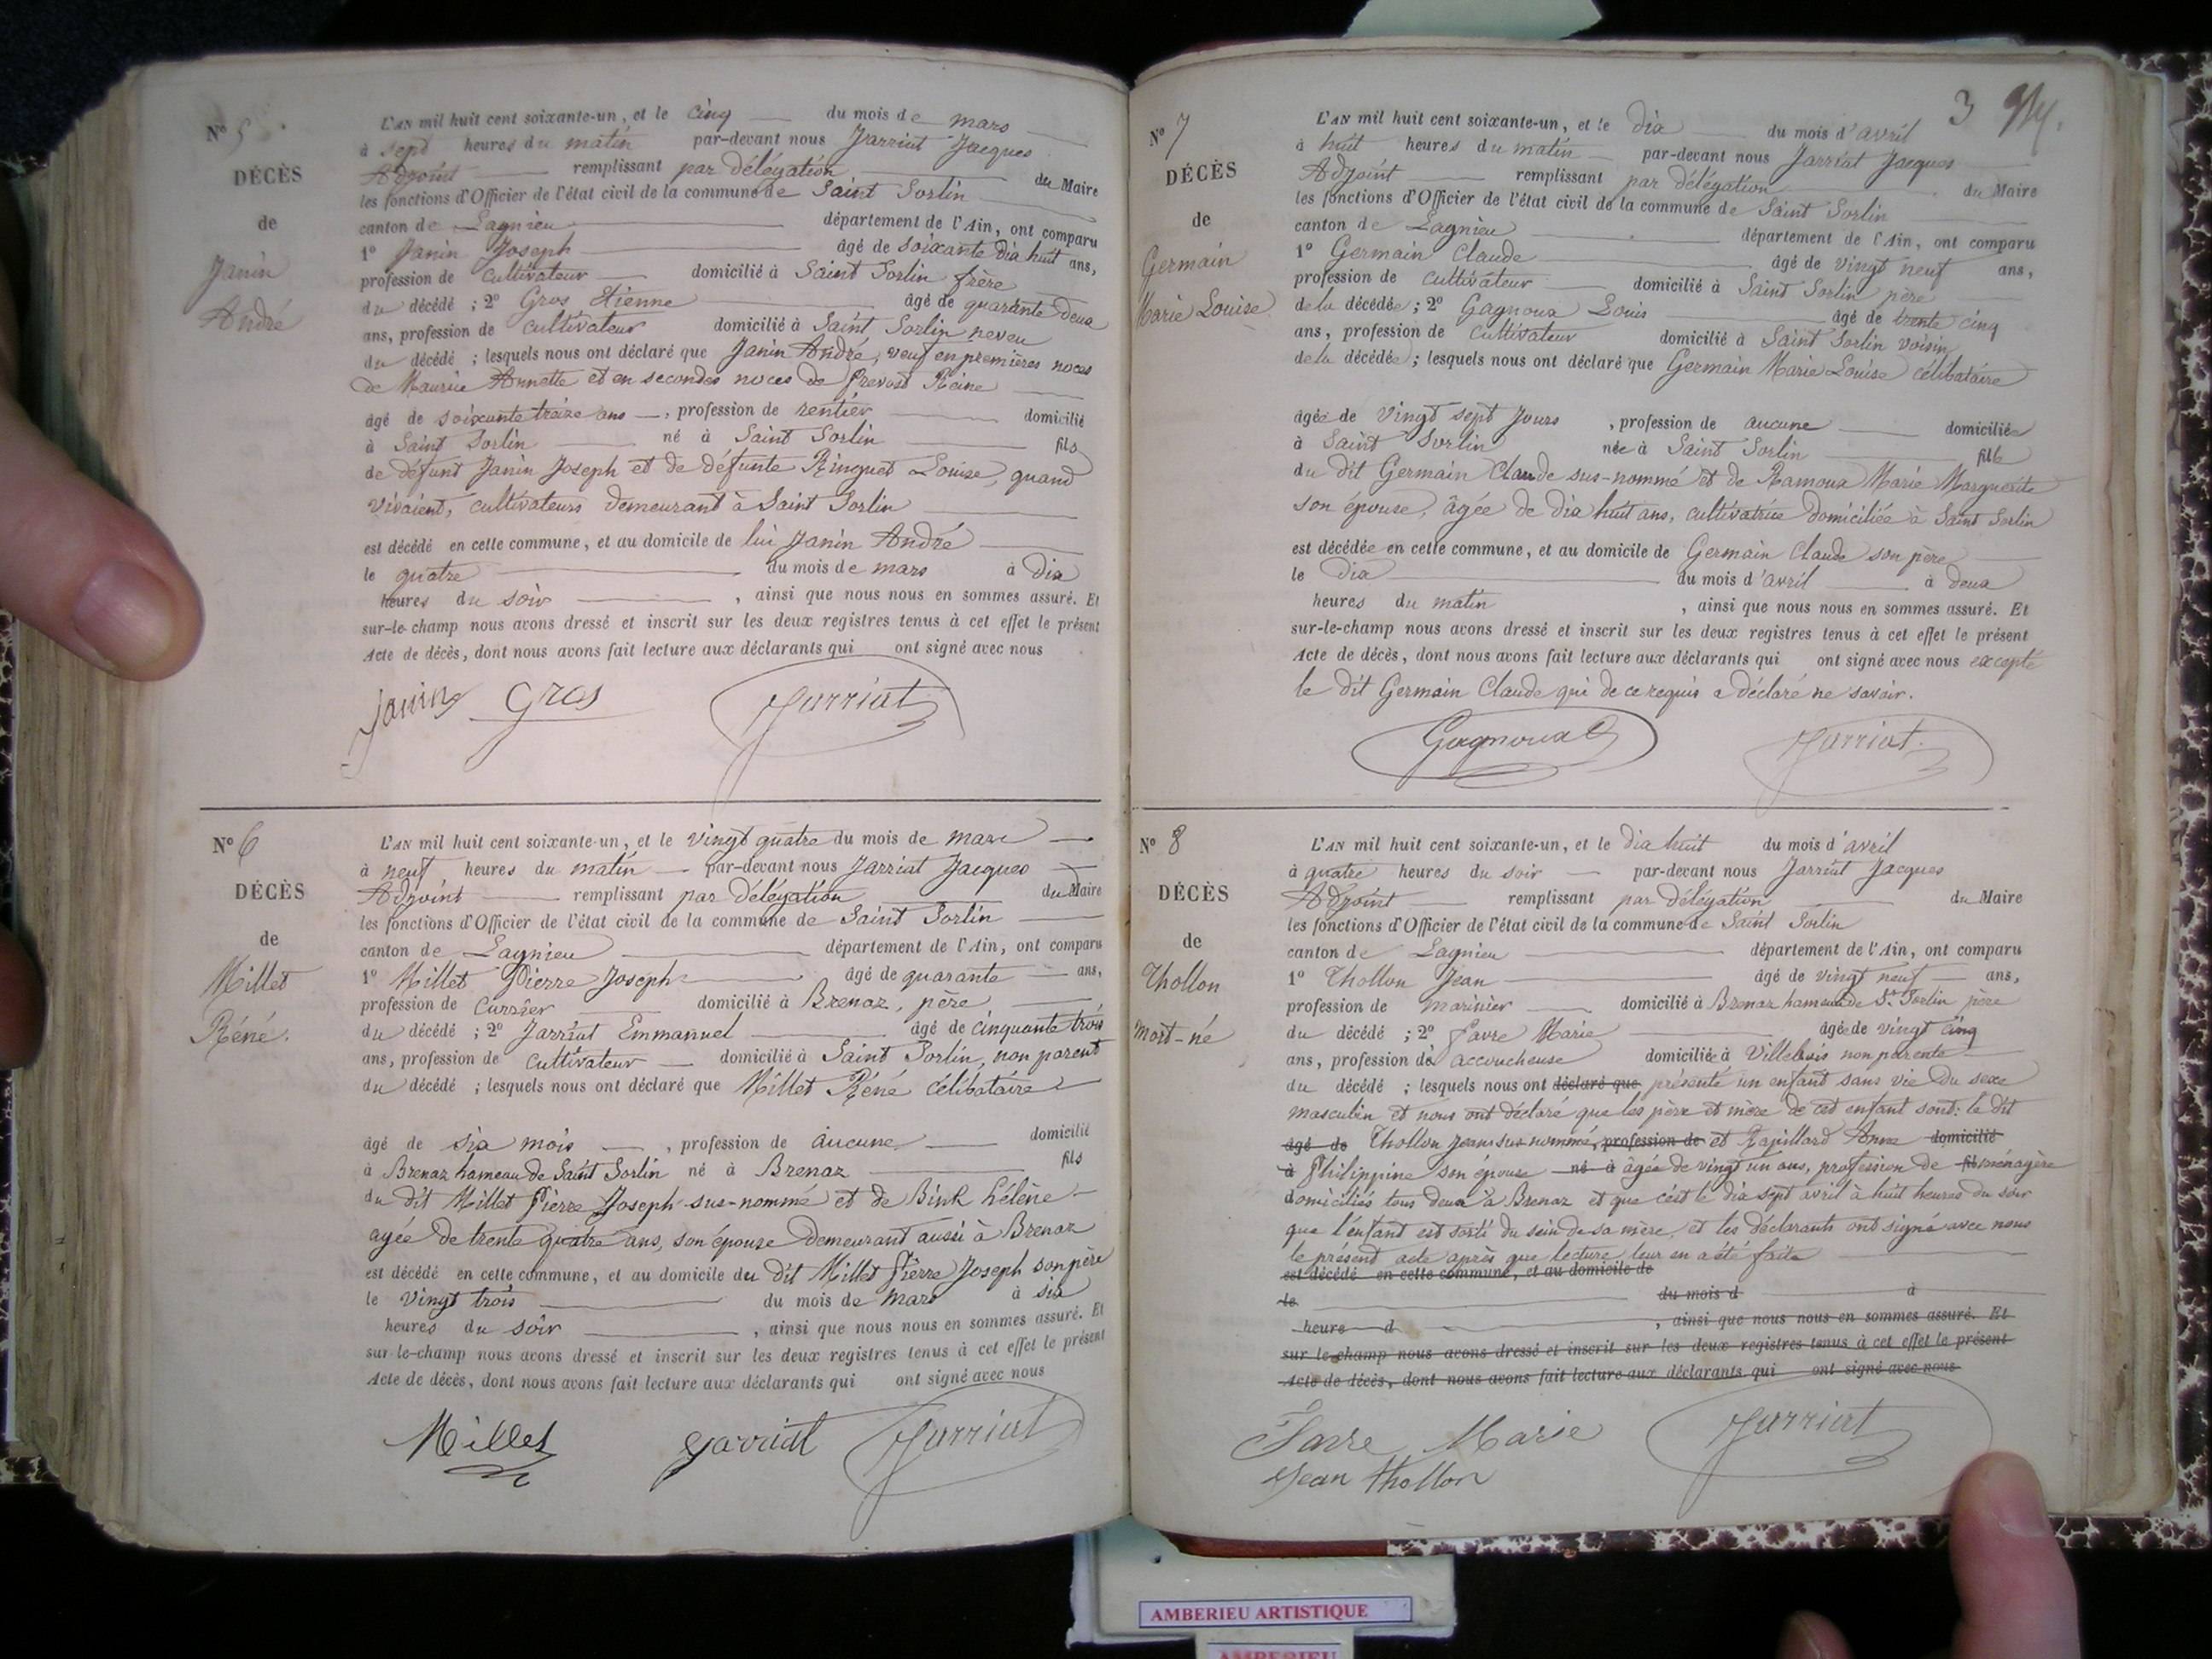 N° 5
DÉCÈS
de
Janin
André
L'AN mil huit cent soixante-un, et le cinq du mois de mars
à sept heures du matin par-devant nous Jarriat Jacques
Adjoint remplissant par délégation du Maire
les fonctions d'Officier de l'état civil de la commune de Saint Sorlin
canton de Lagnieu département de l'Ain, ont comparu
1° Janin Joseph âgé de soixante dix huit ans,
profession de cultivateur domicilié à Saint Sorlin frère
du décédé ; 2° Gros Etienne âgé de quarante deux
ans, profession de cultivateur domicilié à Saint Sorlin neveu
du décédé ; lesquels nous ont déclaré que Janin André, veuf en premières noces
de Maurice Annette et en secondes noces de Prevost Reine
âgé de soixante treize ans, profession de rentier domicilié
à Saint Sorlin né à Saint Sorlin fils
de défunt Janin Joseph et de défunte Ringuet Louise, quand
vivaient, cultivateurs demeurant à Saint Sorlin
est décédé en cette commune, et au domicile de lui Janin André
le quatre du mois de mars à dix
heures du soir, ainsi que nous nous en sommes assuré. Et
sur-le-champ nous avons dressé et inscrit sur les deux registres tenus à cet effet le présent
Acte de décès, dont nous avons fait lecture aux déclarants qui ont signé avec nous
Janin Gros Jarriat
N° 6
DÉCÈS
de
Millet
Réné.
L'AN mil huit cent soixante-un, et le vingt quatre du mois de mars
à neuf heures du matin par-devant nous Jarriat Jacques
Adjoint remplissant par délégation du Maire
les fonctions d'Officier de l'état civil de la commune de Saint Sorlin
canton de Lagnieu département de l'Ain, ont comparu
1° Millet Pierre Joseph âgé de quarante ans,
profession de Carrier domicilié à Brenaz, père
du décédé ; 2° Jarriat Emmanuel âgé de cinquante trois
ans, profession de cultivateur domicilié à Saint Sorlin, non parent
du décédé ; lesquels nous ont déclaré que Millet Réné célibataire
âgé de six mois, profession de aucune domicilié
à Brenaz hameau de Saint Sorlin né à Brenaz fils
du dit Millet Pierre Joseph sus-nommé et de Bink hélène
agée de trente quatre ans, son épouse demeurant aussi à Brenaz
est décédé en cette commune, et au domicile du dit Millet Pierre Joseph son père
le vingt trois du mois de mars à six
heures du soir, ainsi que nous nous en sommes assuré. Et
sur-le-champ nous avons dressé et inscrit sur les deux registres tenus à cet effet le présent
Acte de décès, dont nous avons fait lecture aux déclarants qui ont signé avec nous
Millet Jarriat Jarriat
3
N° 7
DÉCÈS
de
Germain
Marie Louise
L'AN mil huit cent soixante-un, et le dix du mois d'avril
à huit heures du matin par-devant nous Jarriat Jacques
Adjoint remplissant par délégation du Maire
les fonctions d'Officier de l'état civil de la commune de Saint Sorlin
canton de Lagnieu département de l'Ain, ont comparu
1° Germain Claude âgé de vingt neuf ans,
profession de cultivateur domicilié à Saint Sorlin père
de la décédée ; 2° Gagnoux Louis âgé de trente cinq
ans, profession de cultivateur domicilié à Saint Sorlin voisin
de la décédée ; lesquels nous ont déclaré que Germain Marie Louise célibataire
âgée de vingt sept jours, profession de aucune domiciliée
à Saint Sorlin née à Saint Sorlin fille
du dit Germain Claude sus-nommé et de Ramoux Marie Marguerite
son épouse, âgée de dix huit ans, cultivatrice domiciliée à Saint Sorlin
est décédée en cette commune, et au domicile de Germain Claude son père
le dix du mois d'avril à deux
heures du matin, ainsi que nous nous en sommes assuré. Et
sur-le-champ nous avons dressé et inscrit sur les deux registres tenus à cet effet le présent
Acte de décès, dont nous avons fait lecture aux déclarants qui ont signé avec nous excepté
le dit Germain Claude qui de ce requis a déclaré ne savoir.
Gagnoux Jarriat
N° 8
DÉCÈS
de
Thollon
Mort-né
L'AN mil huit cent soixante-un, et le dix huit du mois d'avril
à quatre heures du soir par-devant nous Jarriat Jacques
Adjoint remplissant par délégation du Maire
les fonctions d'Officier de l'état civil de la commune de Saint Sorlin
canton de Lagnieu département de l'Ain, ont comparu
1° Thollon Jean âgé de vingt neuf ans,
profession de marinier domicilié à Brenaz hameau de St Sorlin père
du décédé ; 2° Favre Marie âgée de vingt cinq
ans, profession de accoucheuse domiciliée à Villebois non parente
du décédé ; lesquels nous ont déclaré que présenté un enfant sans vie du sexe
masculin et nous ont déclaré que les père et mère de cet enfant sont: le dit
âgé de Thollon Jean sus-nommé, profession de et Rapillard Anne domicilié
à Philippine son épouse né à âgée de vingt un ans, profession de fils ménagère
domiciliés tous deux à Brenaz et que c'est le dix sept avril à huit heures du soir
que l'enfant est sorti du sein de sa mère, et les déclarants ont signé avec nous
le présent acte après que lecture leur en a été faite
est décédé en cette commune, et au domicile de
le du mois d à
heure d, ainsi que nous nous en sommes assuré. Et
sur le-champ nous avons dressé et inscrit sur les deux registres tenus à cet effet le présent
Acte de décès, dont nous avons fait lecture aux déclarants qui ont signé avec nous
Favre Marie Jarriat
Jean thollon
AMBERIEU ARTISTIQUE
AMBERIEU